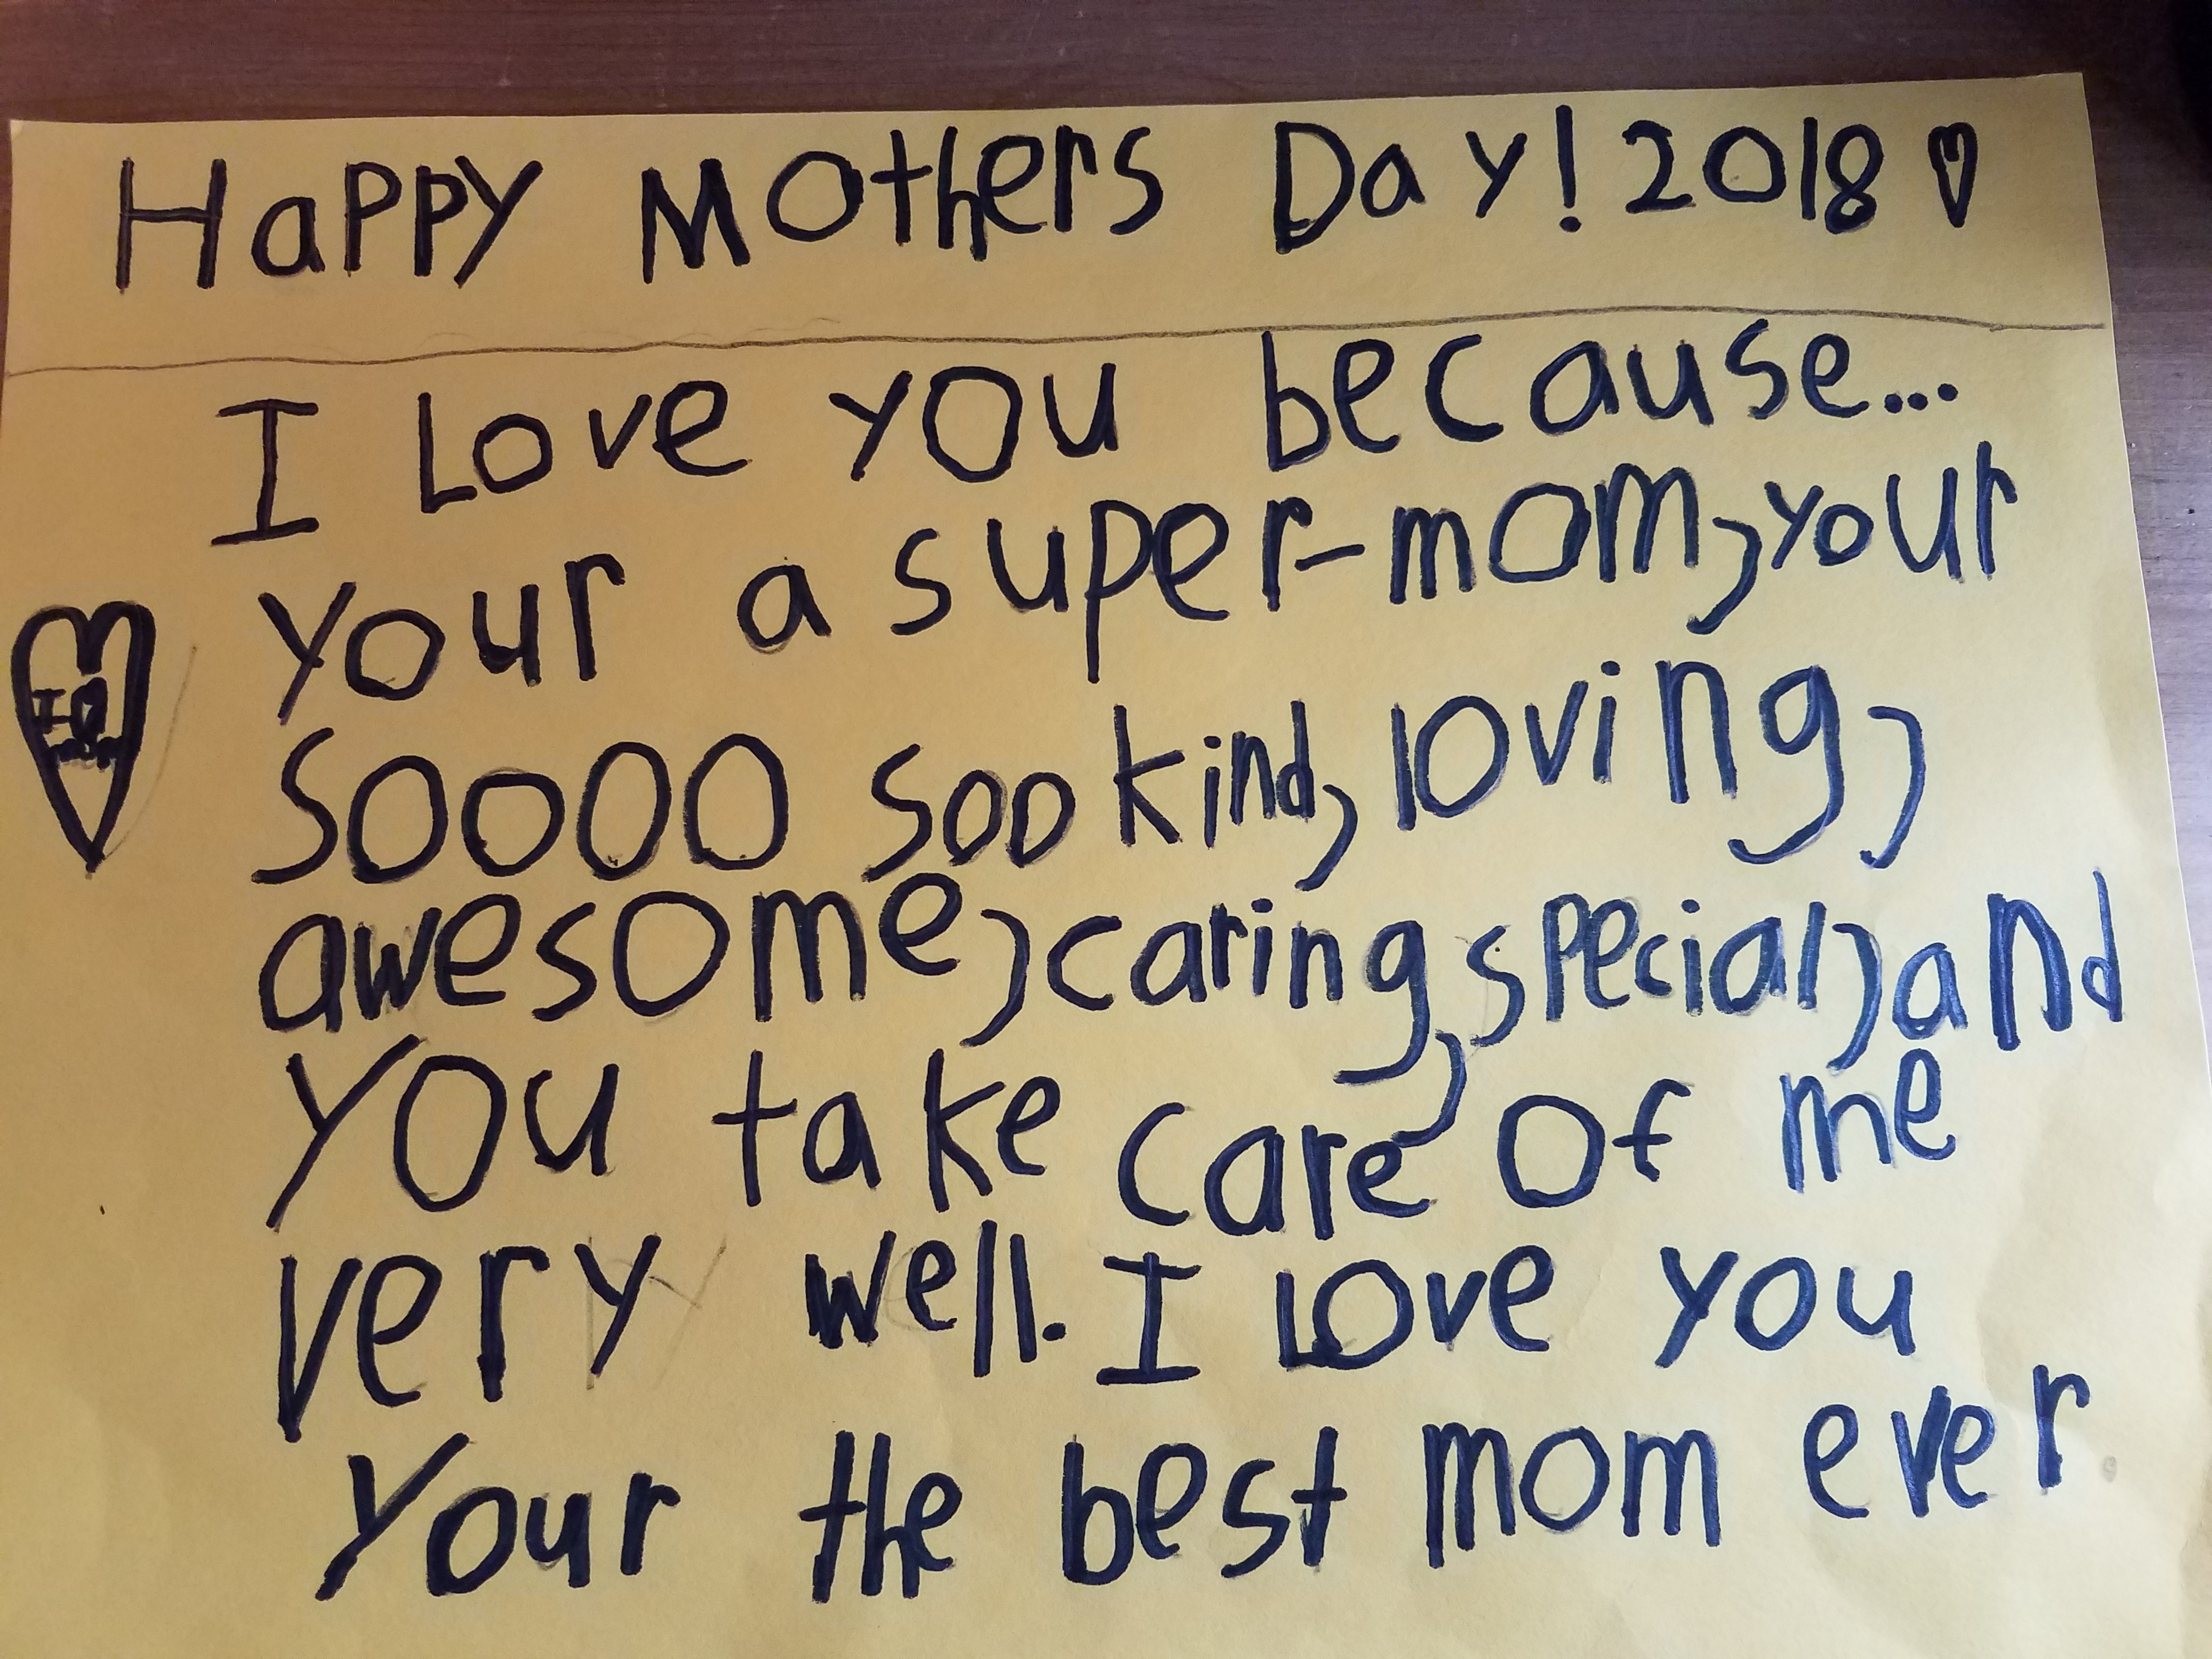 Happy Mothers Day! 2018 ♡
I Love you because...
your a super-mom, your
soooo soo kind, loving,
awesome, caring, special, and
you take care of me
very well. I Love you
Your the best mom ever
I ♡
mom